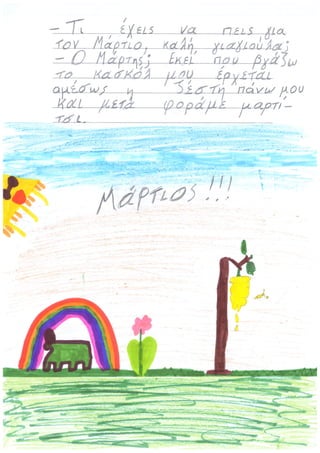 - Τι έχεις να πεις για
τον Μάρτιο, καλή γιαγιούλα;
- Ο Μάρτης; Εκεί που βγάζω
το κασκόλ μου έρχεται
αμέσως η ζέστη πάνω μου
και μετά φοράμε μαρτί-
τσι.
ΜΆΡΤΙΟΣ!!!